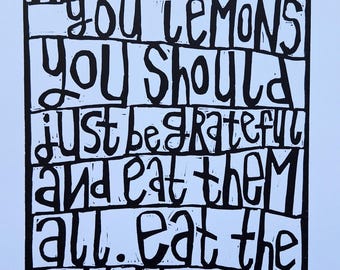 you lemons
you should
just be grateful
and eat them
all. eat the